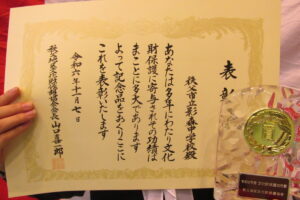 表彰
秩父市立影森中学校殿
あなたは多年にわたり文化
財保護に寄与されその功績は
まことに多大であります
よって記念品をおくりここに
これを表彰いたします
令和六年十一月七日
会長 山口喜一郎